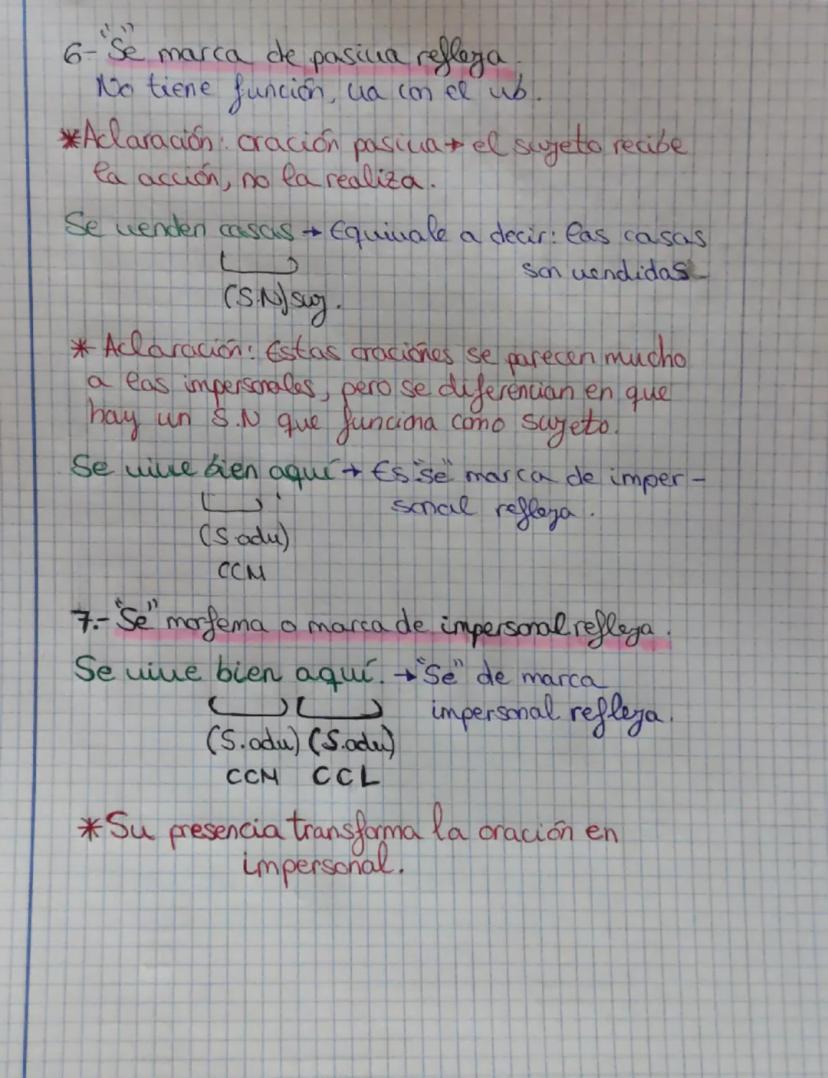 6- "Se" marca de pasiva refleja.
No tiene función, va con el vb.
*Aclaración: oración pasiva → el sujeto recibe
la acción, no la realiza.
Se venden casas → Equivale a decir: las casas
son vendidas
(S.N) suj.
* Aclaración: Estas oraciones se parecen mucho
a las impersonales, pero se diferencian en que
hay un S.N que funciona como sujeto.
Se vive bien aquí → Es "se" marca de imper-
sonal refleja.
(S.adv)
CCM
7.- "Se" morfema o marca de impersonal refleja.
Se vive bien aquí. → "Se" de marca
impersonal refleja.
(S.adv) (S.adv)
CCM CCL
*Su presencia transforma la oración en
impersonal.